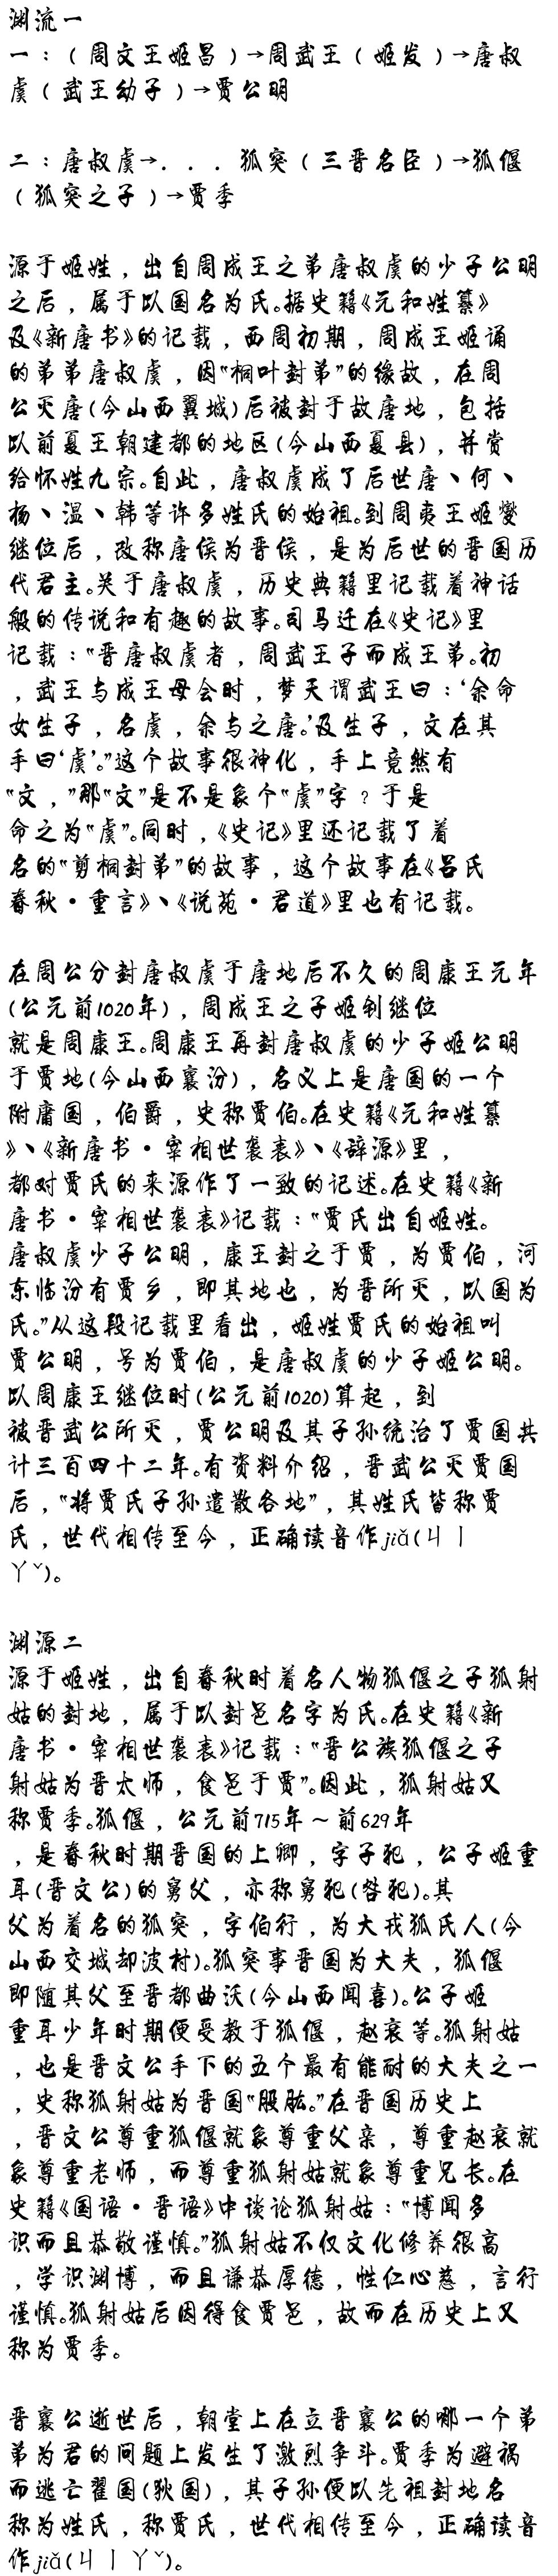 渊流一
一：（周文王姬昌）→周武王（姬发）→唐叔
虞（武王幼子）→贾公明
二：唐叔虞→．．．狐突（三晋名臣）→狐偃
（狐突之子）→贾季
源于姬姓，出自周成王之弟唐叔虞的少子公明
之后，属于以国名为氏。据史籍《元和姓纂》
及《新唐书》的记载，西周初期，周成王姬诵
的弟弟唐叔虞，因“桐叶封弟”的缘故，在周
公灭唐(今山西翼城)后被封于故唐地，包括
以前夏王朝建都的地区(今山西夏县)，并赏
给怀姓九宗。自此，唐叔虞成了后世唐、何、
杨、温、韩等许多姓氏的始祖。到周夷王姬燮
继位后，改称唐侯为晋侯，是为后世的晋国历
代君主。关于唐叔虞，历史典籍里记载着神话
般的传说和有趣的故事。司马迁在《史记》里
记载：“晋唐叔虞者，周武王子而成王弟。初
，武王与成王母会时，梦天谓武王曰：‘余命
女生子，名虞，余与之唐。’及生子，文在其
手曰‘虞’。”这个故事很神化，手上竟然有
“文，”那“文”是不是象个“虞”字？于是
命之为“虞”。同时，《史记》里还记载了着
名的“剪桐封弟”的故事，这个故事在《吕氏
春秋·重言》、《说苑·君道》里也有记载。
在周公分封唐叔虞于唐地后不久的周康王元年
(公元前1020年)，周成王之子姬钊继位
就是周康王。周康王再封唐叔虞的少子姬公明
于贾地(今山西襄汾)，名义上是唐国的一个
附庸国，伯爵，史称贾伯。在史籍《元和姓纂
》、《新唐书·宰相世袭表》、《辞源》里，
都对贾氏的来源作了一致的记述。在史籍《新
唐书·宰相世袭表》记载：“贾氏出自姬姓。
唐叔虞少子公明，康王封之于贾，为贾伯，河
东临汾有贾乡，即其地也，为晋所灭，以国为
氏。”从这段记载里看出，姬姓贾氏的始祖叫
贾公明，号为贾伯，是唐叔虞的少子姬公明。
以周康王继位时(公元前1020)算起，到
被晋武公所灭，贾公明及其子孙统治了贾国共
计三百四十二年。有资料介绍，晋武公灭贾国
后，“将贾氏子孙遣散各地”，其姓氏皆称贾
氏，世代相传至今，正确读音作jiǎ(ㄐㄧ
ㄚˇ)。
渊源二
源于姬姓，出自春秋时着名人物狐偃之子狐射
姑的封地，属于以封邑名字为氏。在史籍《新
唐书·宰相世袭表》记载：“晋公族狐偃之子
射姑为晋太师，食邑于贾”。因此，狐射姑又
称贾季。狐偃，公元前715年～前629年
，是春秋时期晋国的上卿，字子犯，公子姬重
耳(晋文公)的舅父，亦称舅犯(咎犯)。其
父为着名的狐突，字伯行，为大戎狐氏人(今
山西交城却波村)。狐突事晋国为大夫，狐偃
即随其父至晋都曲沃(今山西闻喜)。公子姬
重耳少年时期便受教于狐偃，赵衰等。狐射姑
，也是晋文公手下的五个最有能耐的大夫之一
，史称狐射姑为晋国“股肱。”在晋国历史上
，晋文公尊重狐偃就象尊重父亲，尊重赵衰就
象尊重老师，而尊重狐射姑就象尊重兄长。在
史籍《国语·晋语》中谈论狐射姑：“博闻多
识而且恭敬谨慎。”狐射姑不仅文化修养很高
，学识渊博，而且谦恭厚德，性仁心慈，言行
谨慎。狐射姑后因得食贾邑，故而在历史上又
称为贾季。
晋襄公逝世后，朝堂上在立晋襄公的哪一个弟
弟为君的问题上发生了激烈争斗。贾季为避祸
而逃亡翟国(狄国)，其子孙便以先祖封地名
称为姓氏，称贾氏，世代相传至今，正确读音
作jiǎ(ㄐㄧㄚˇ)。